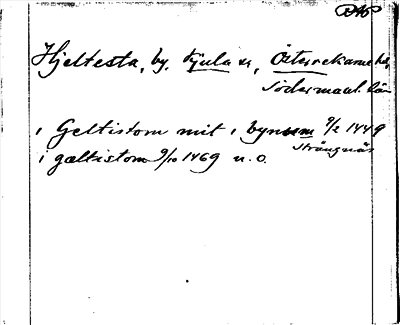 Hjeltesta, by, Kjula sn, Österrekarne hd,
Södermanl. län
i Geltistom mit i bynom 9/2 1449
Strängnäs
i gæltistom 9/10 1469 u. o.